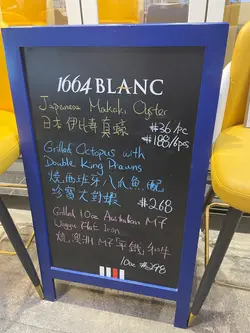 1664 BLANC
Japanese Makoki Oyster
日本伊比寿真蠔
#36/pc
#188/6pcs
Grilled Octopus with
Double King Prawns
燒西班牙八爪魚配
大對蝦
#268
Grilled 10oz Australian M7
Wagyu Flat Iron
燒澳洲M7平鐵和牛
10oz #298